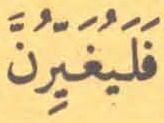 فَلَيُغَيِّرُنَّ